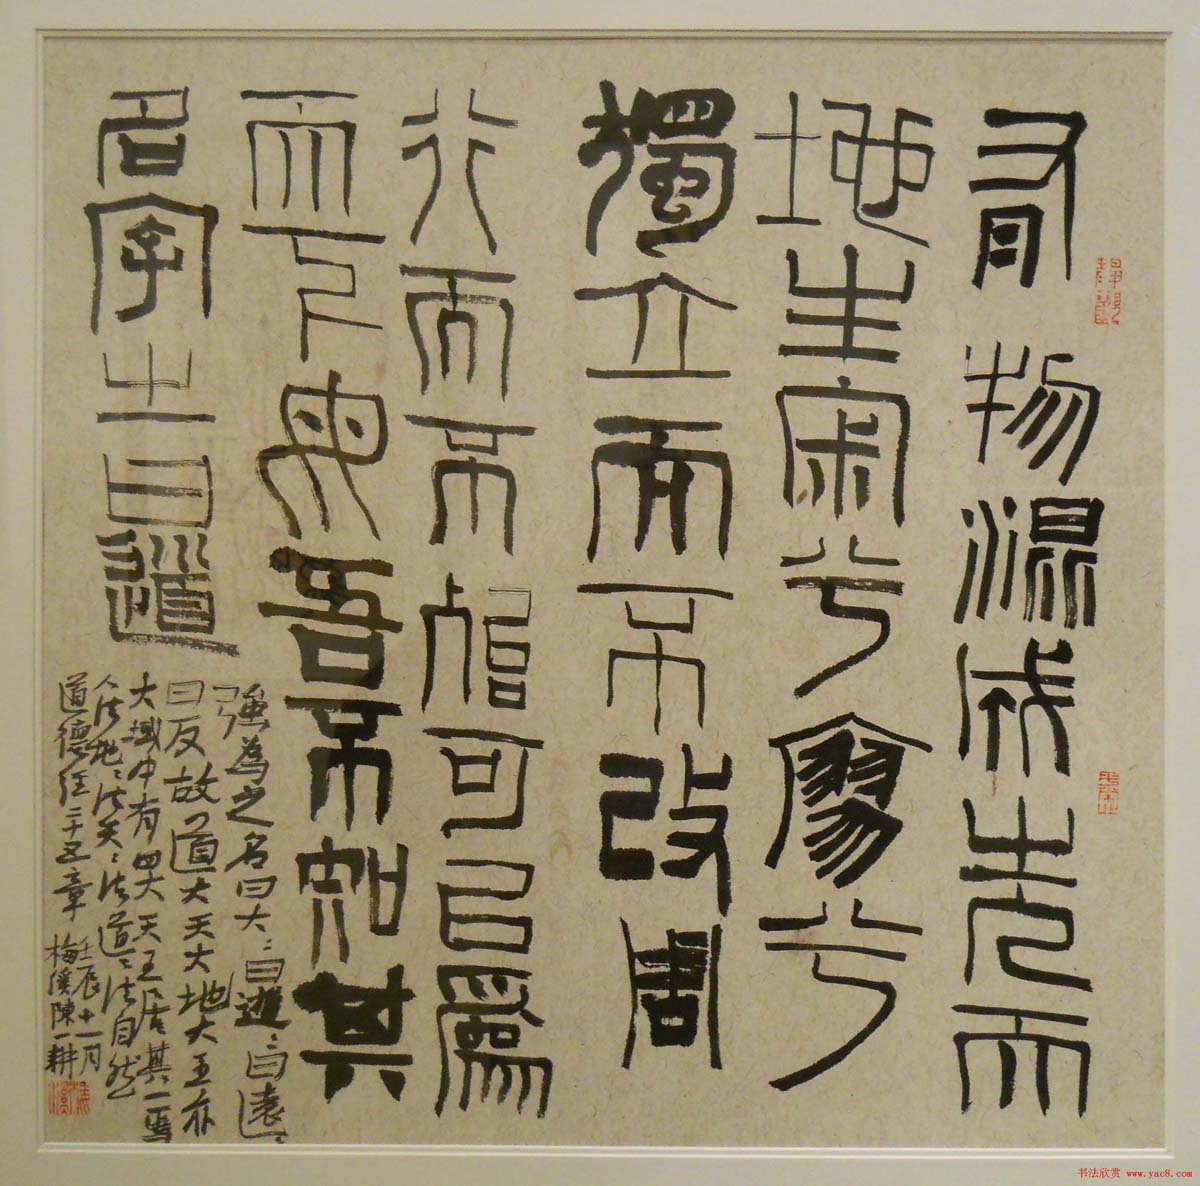 有物混成先天
地生寂兮寥兮
獨立而不改周
行而不殆可以為
天下母吾不知其
名字之曰道
強為之名曰大〻曰逝〻曰遠〻
曰反故道大天大地大王亦
大域中有四大而王居其一焉
人法地〻法天〻法道〻法自然
道德經二十五章
壬辰十一月
梅溪陳一耕
书法欣赏 www.yac8.com